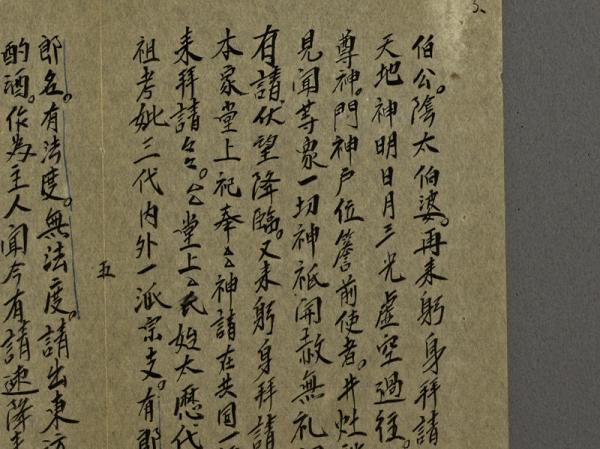 伯公。陰太伯婆。再来躬身拜請
天地神明日月三光虛空過往。
尊神。門神戶位簷前使者。井灶
見聞等眾一切神祇開赦無礼
有請伏望降臨。又来躬身拜請
本家堂上祀奉厶神請在共同一
来拜請々々。厶堂上厶氏姓太歷代
祖考妣三代内外一派宗支。有郎
五
郎名。有法度。無法度。請出東
酌酒。作为主人聞今有請速降